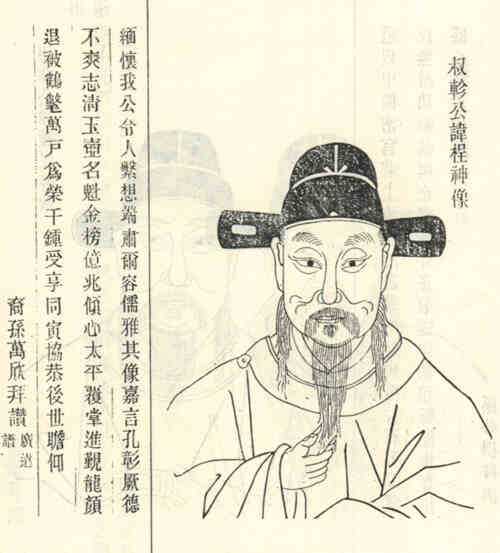 叔軫公諱程神像
緬懷我公令人繫想端肅爾容儒雅其像嘉言孔彰厥德
不爽志清玉壺名魁金榜億兆傾心太平覆掌進覲龍顏
退被鶴氅萬戸爲榮千鍾受享同寅協恭後世瞻仰
裔孫萬欣拜讚
譜